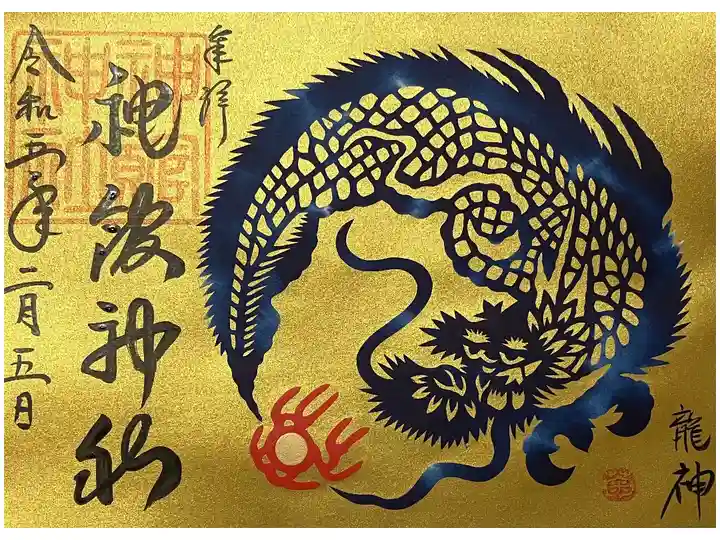 龍神
奉拝
神館神社
令和五年二月五日